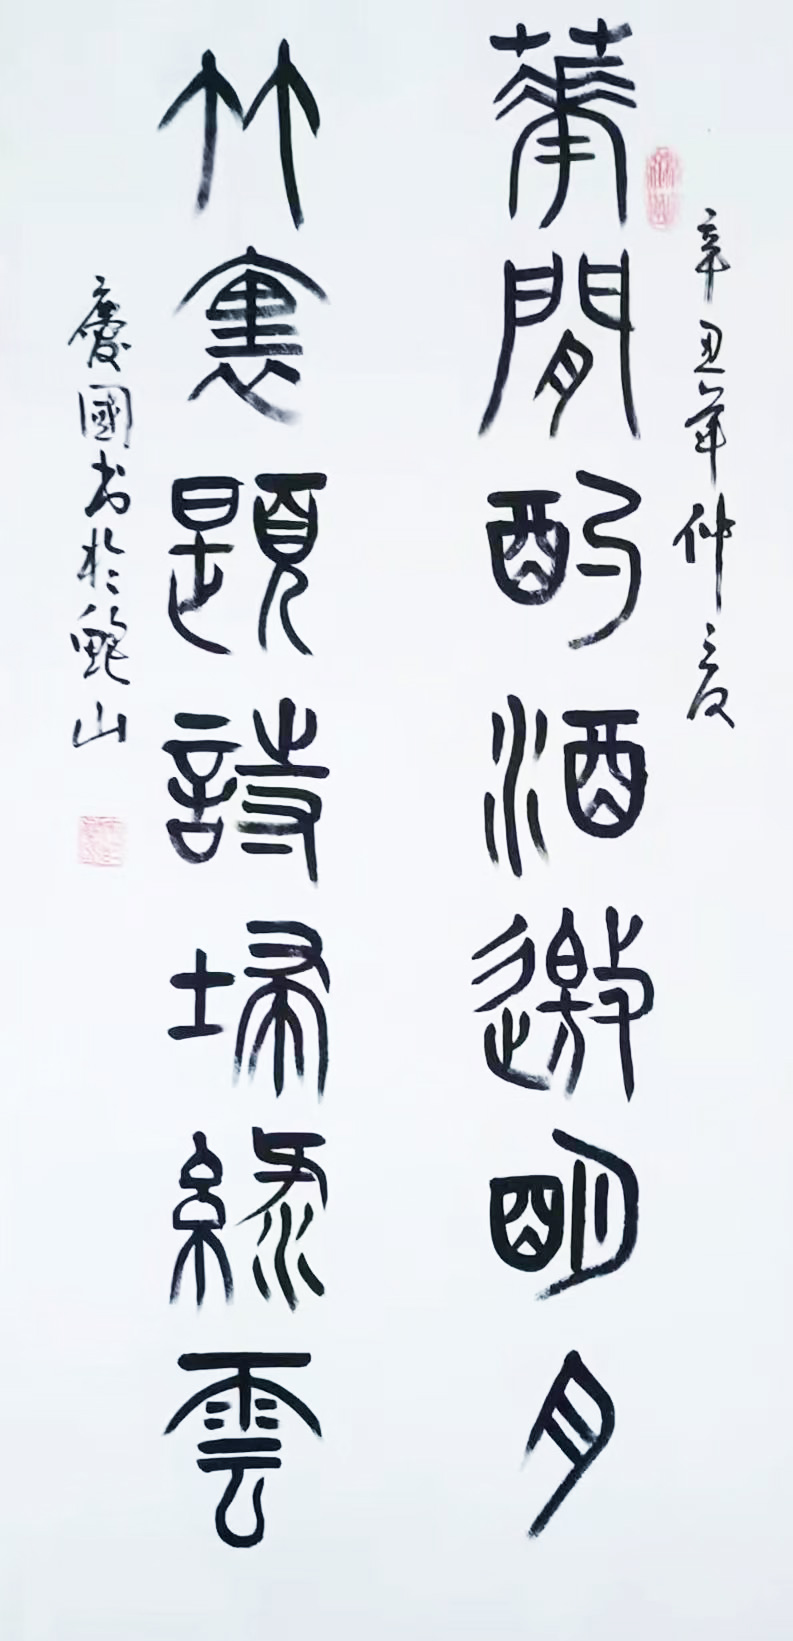 辛丑年仲夏
華閒酌酒邀明月
竹裏題詩掃綠雲
慶國书於鮑山